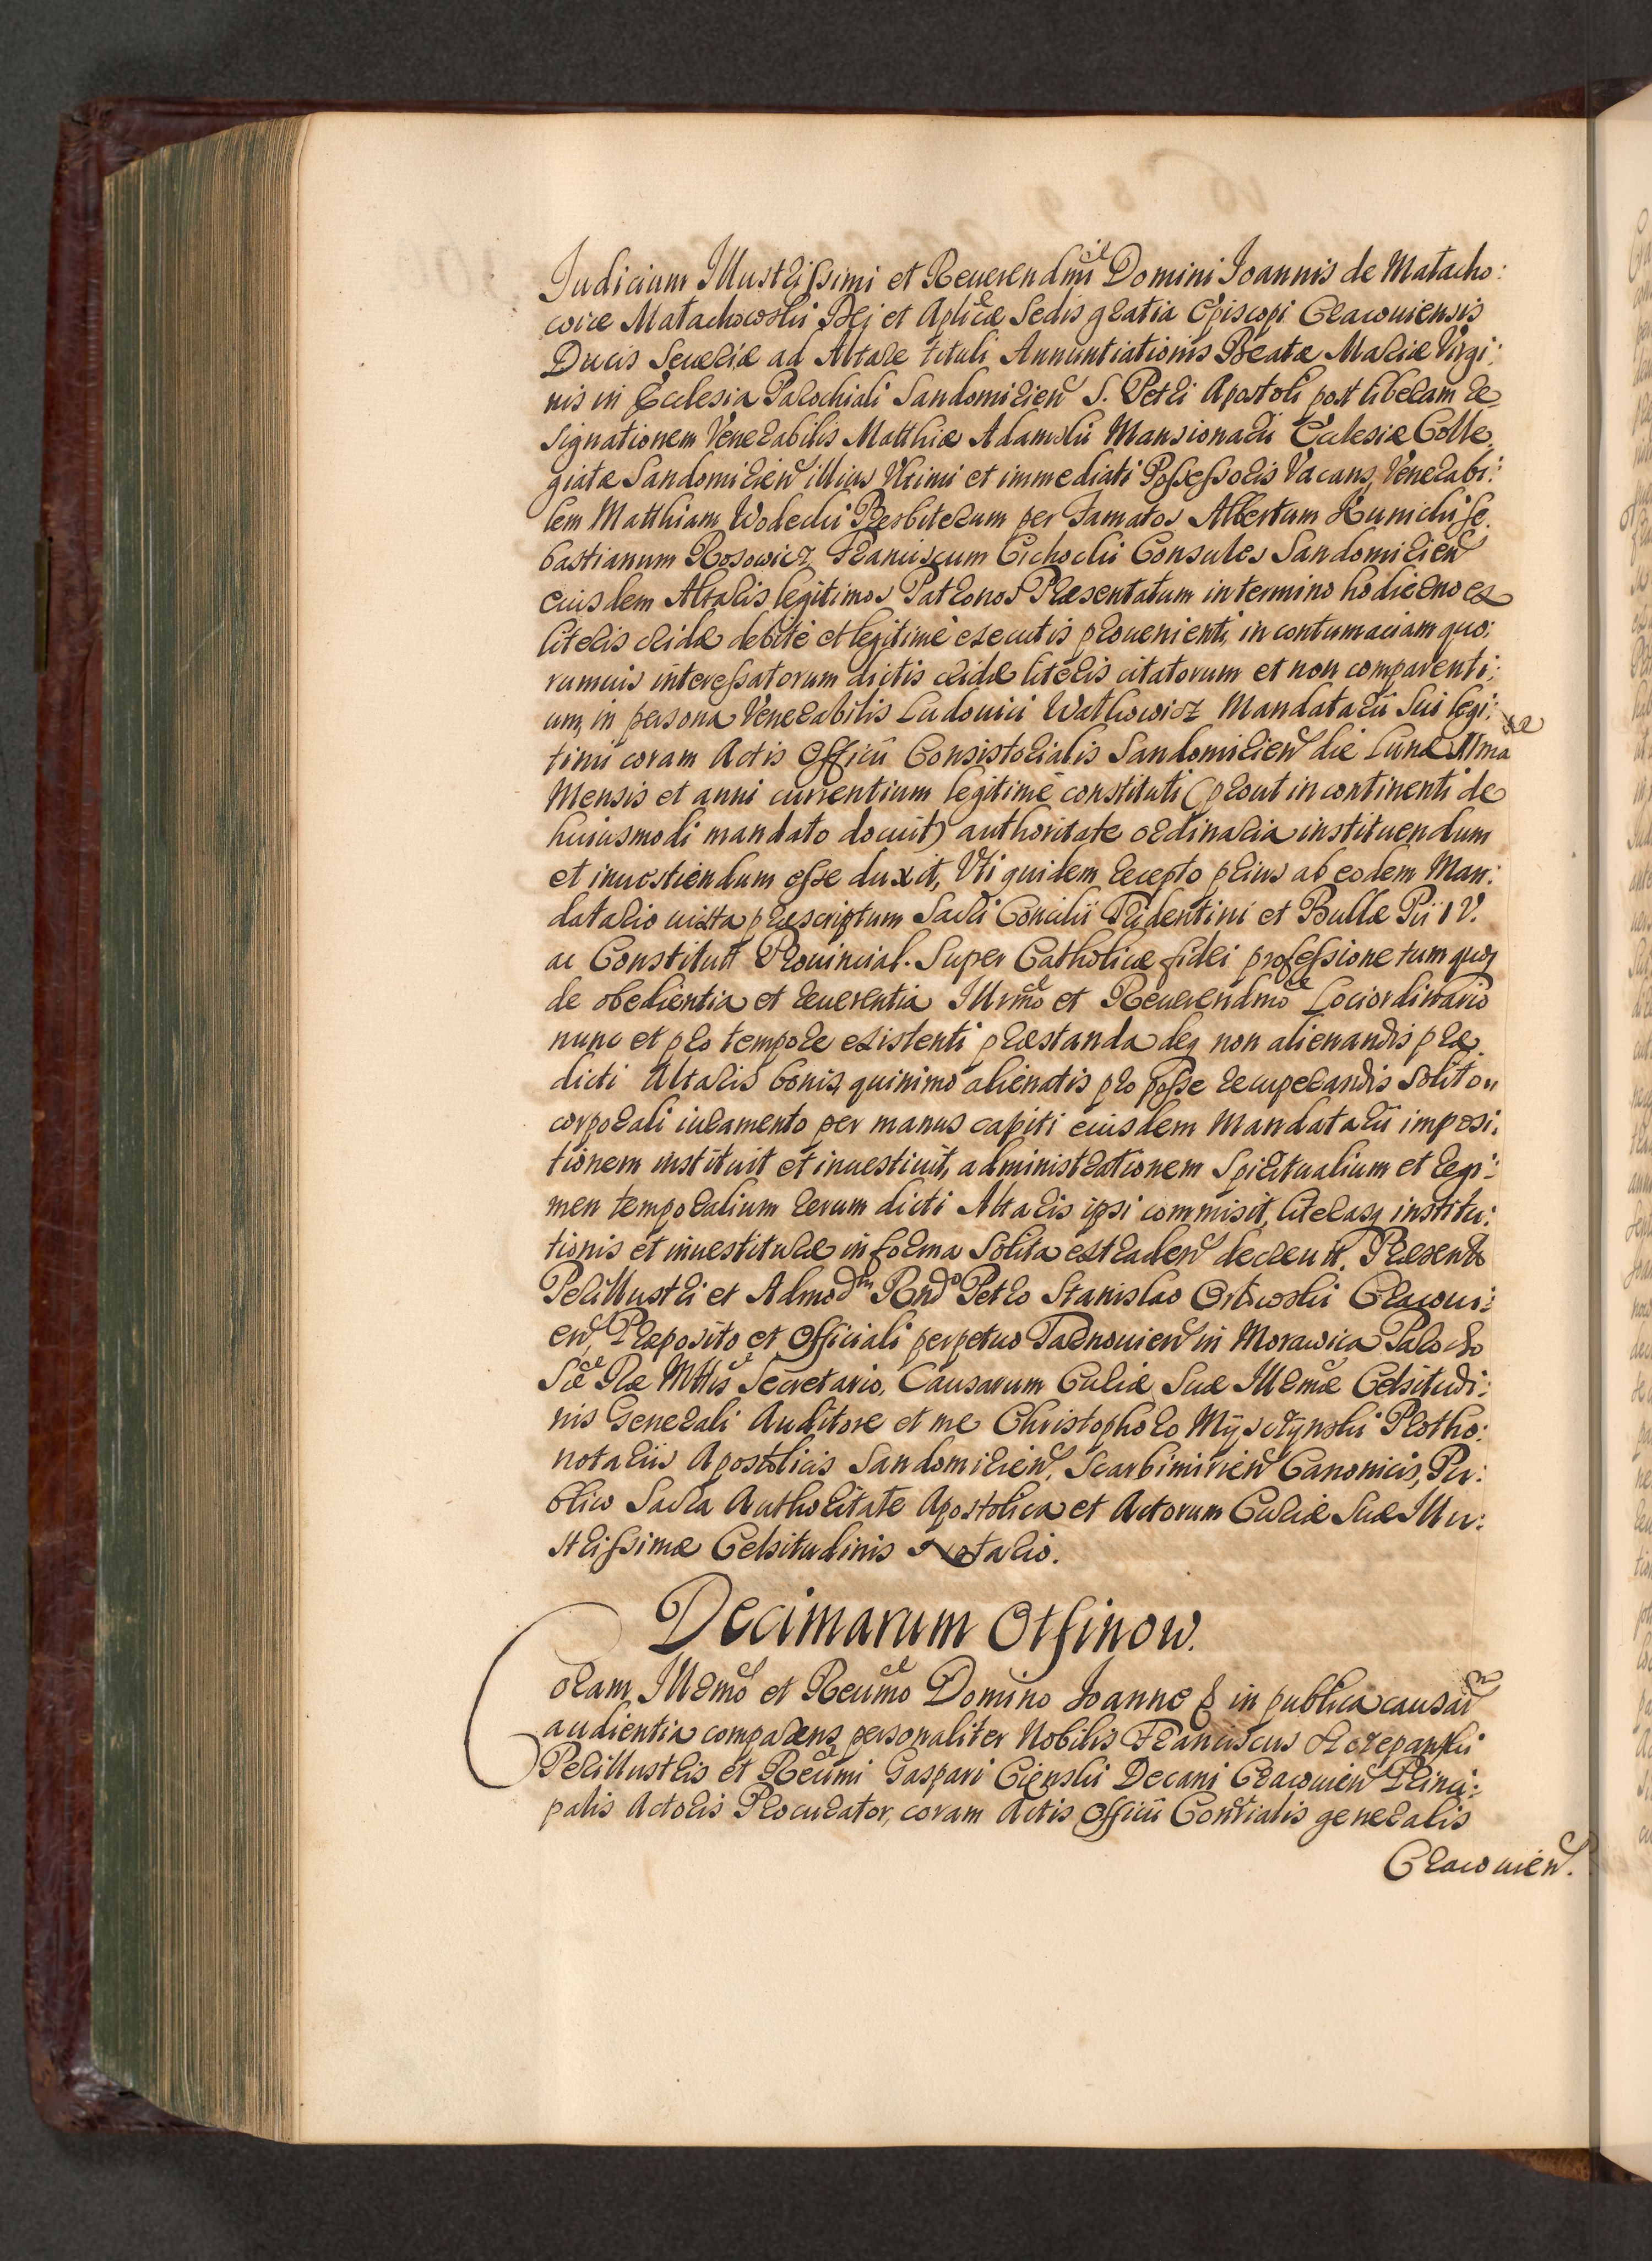 Judicium Illustrissimi et Reuerendmi Domini Joannis de Małacho:
wice Małachowski Dei et Aplicæ Sedis gratia Episcopi Cracouiensis
Ducis Seueriæ ad Altare tituli Annuntiationis Beatæ Mariæ Virgi:
nis in Ecclesia Parochiali Sandomirien S. Petri Apostoli post liberam re
signationem Venerabilis Matthiæ Adamski Mansionarii Ecclesiæ Colle
giatæ Sandomirien illius Vltimi et immediati Possessoris Vacans, Venerabi:
lem Matthiam Wodecki Presbiterum per Famatos Albertum Kunicki Se
bastianum Rosowicz Franciscum Cichocki Consules Sandomirien
eiusdem Altaris legitimos Patronos Præsentatum in termino hodierno ex
literis cridæ debitè et legitimè executis prouenienti, in contumaciam quo:
rumuis interessatorum dictis cridæ literis citatorum et non comparenti:
um, in persona Venerabilis Ludouici Watkowicz Mandatarii sui legi:
timi coram Actis Officii Consistorialis Sandomirien die Lunæ Vlma
Mensis et anni currentium legitimè constituti (prout in continenti de
huiusmodi mandato docuit) authoritate ordinaria instituendum
et inuestiendum esse duxit, Vti quidem recepto prius ab eodem Man:
datario iuxta præscriptum Sacri Concilii Tridentini et Bullæ Pii IV.
ac Constitutt Prouincial. Super Catholicæ fidei professione tum quoq
de obedientia et reuerentia Illrmo et Reuerendmo Lociordinario
nunc et pro tempore existenti præstanda deq non alienandis præ
dicti Altaris bonis, quinimo alienatis pro posse recuperandis solito
corporali iuramento per manus capiti eiusdem Mandatarii imposi:
tionem instituit et inuestiuit, administrationem Spiritualium et regi:
men temporalium rerum dicti Altaris ipsi commisit, literasq institu:
tionis et inuestituræ in forma solita extraden decreuit. Præsente
Perillustri et Admodm Rndo Petro Stanislao Orłowski Cracoui:
en, Præposito et Officiali perpetuo Tarnouien in Morawica Parocho
Sæ Ræ Mttis Secretario, Causarum Curiæ Suæ Illrmæ Celsitudi:
nis Generali Auditore et me Christophoro Mysczynski Protho:
notariis Apostolicis Sandomirien, Scarbimirien Canonicis, Pu:
blico Sacra Authoritate Apostolica et Actorum Curiæ Suæ Illu:
strissimæ Celsitudinis Notario.
Decimarum Otfinow.
Coram Illrmo et Reurmo Domino Joanne in publica causar
audientia comparens personaliter Nobilis Franciscus Sczepanski
Perillustris et Reurmi Gaspari Cienski Decani Cracouien Princi:
palis Actoris Procurator, coram Actis Officii Contialis generalis
Cracouien.